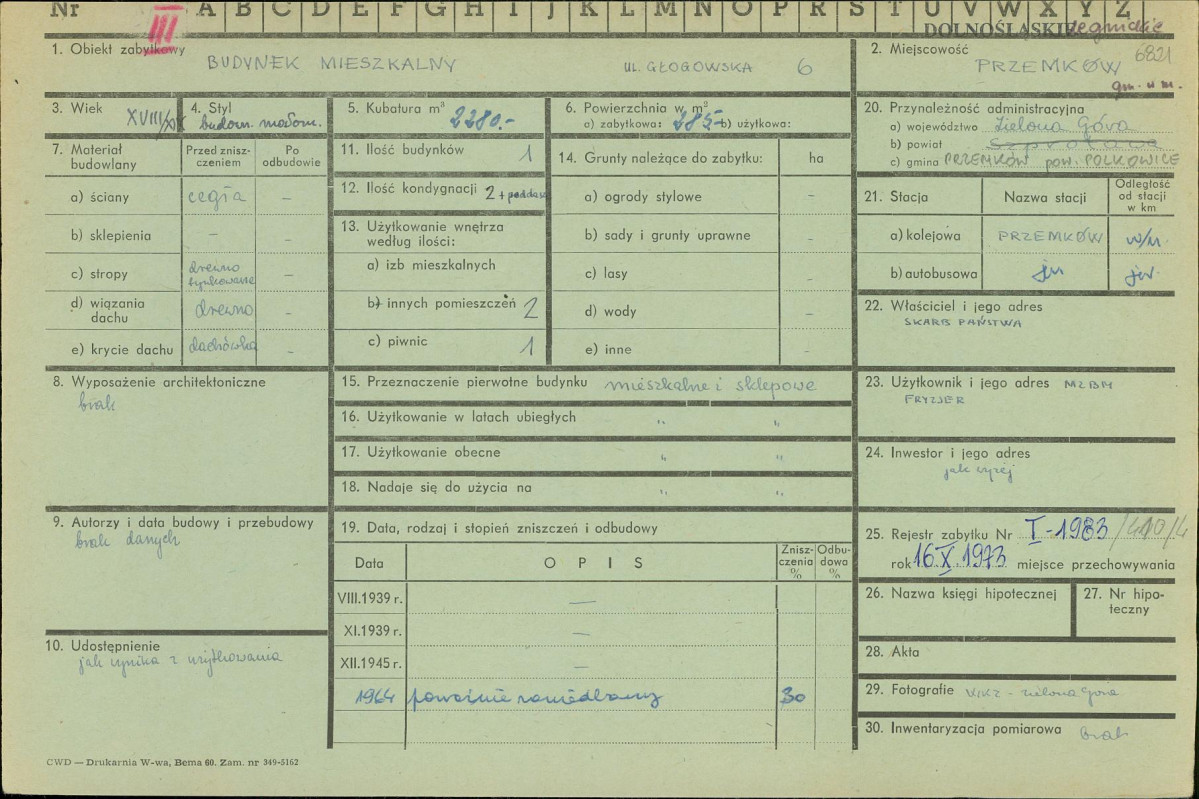 Nr III A B C D E F G H I J K L M N O P R S T U V W X Y Z
DOLNOŚLĄSKIE legnickie
1. Obiekt zabytkowy
BUDYNEK MIESZKALNY ul. GŁOGOWSKA 6
2. Miejscowość 6821
PRZEMKÓW
gm. u m.
3. Wiek XVIII/XIX
4. Styl
budown. małom.
5. Kubatura m³ 2280.-
6. Powierzchnia w m²
a) zabytkowa: 285.- b) użytkowa:
20. Przynależność administracyjna
a) województwo Zielona Góra
b) powiat Szprotawa
c) gmina PRZEMKÓW pow. POLKOWICE
7. Materiał budowlany
Przed zniszczeniem
Po odbudowie
a) ściany cegła –
b) sklepienia – –
c) stropy drewno tynkowane –
d) wiązania dachu drewno –
e) krycie dachu dachówka –
11. Ilość budynków 1
12. Ilość kondygnacji 2 + poddasze
13. Użytkowanie wnętrza
według ilości:
a) izb mieszkalnych
b) innych pomieszczeń 2
c) piwnic 1
14. Grunty należące do zabytku: ha
a) ogrody stylowe –
b) sady i grunty uprawne –
c) lasy –
d) wody –
e) inne –
21. Stacja Nazwa stacji Odległość od stacji w km
a) kolejowa PRZEMKÓW w/m.
b) autobusowa jw jw.
22. Właściciel i jego adres
SKARB PAŃSTWA
8. Wyposażenie architektoniczne
brak
15. Przeznaczenie pierwotne budynku mieszkalne i sklepowe
16. Użytkowanie w latach ubiegłych " "
17. Użytkowanie obecne " "
18. Nadaje się do użycia na " "
23. Użytkownik i jego adres MZBM
FRYZJER
24. Inwestor i jego adres
jak wyżej
9. Autorzy i data budowy i przebudowy
brak danych
19. Data, rodzaj i stopień zniszczeń i odbudowy
Data OPIS Zniszczenia % Odbudowa %
VIII.1939 r. —
XI.1939 r. —
XII.1945 r. —
1964 poważnie zaniedbany 30
25. Rejestr zabytku Nr I-1983 /410/4
rok 16 X 1973 miejsce przechowywania
26. Nazwa księgi hipotecznej
27. Nr hipoteczny
10. Udostępnienie
jak wynika z użytkowania
28. Akta
29. Fotografie WKZ - Zielona Góra
30. Inwentaryzacja pomiarowa brak
CWD — Drukarnia W-wa, Bema 60. Zam. nr 349-5162